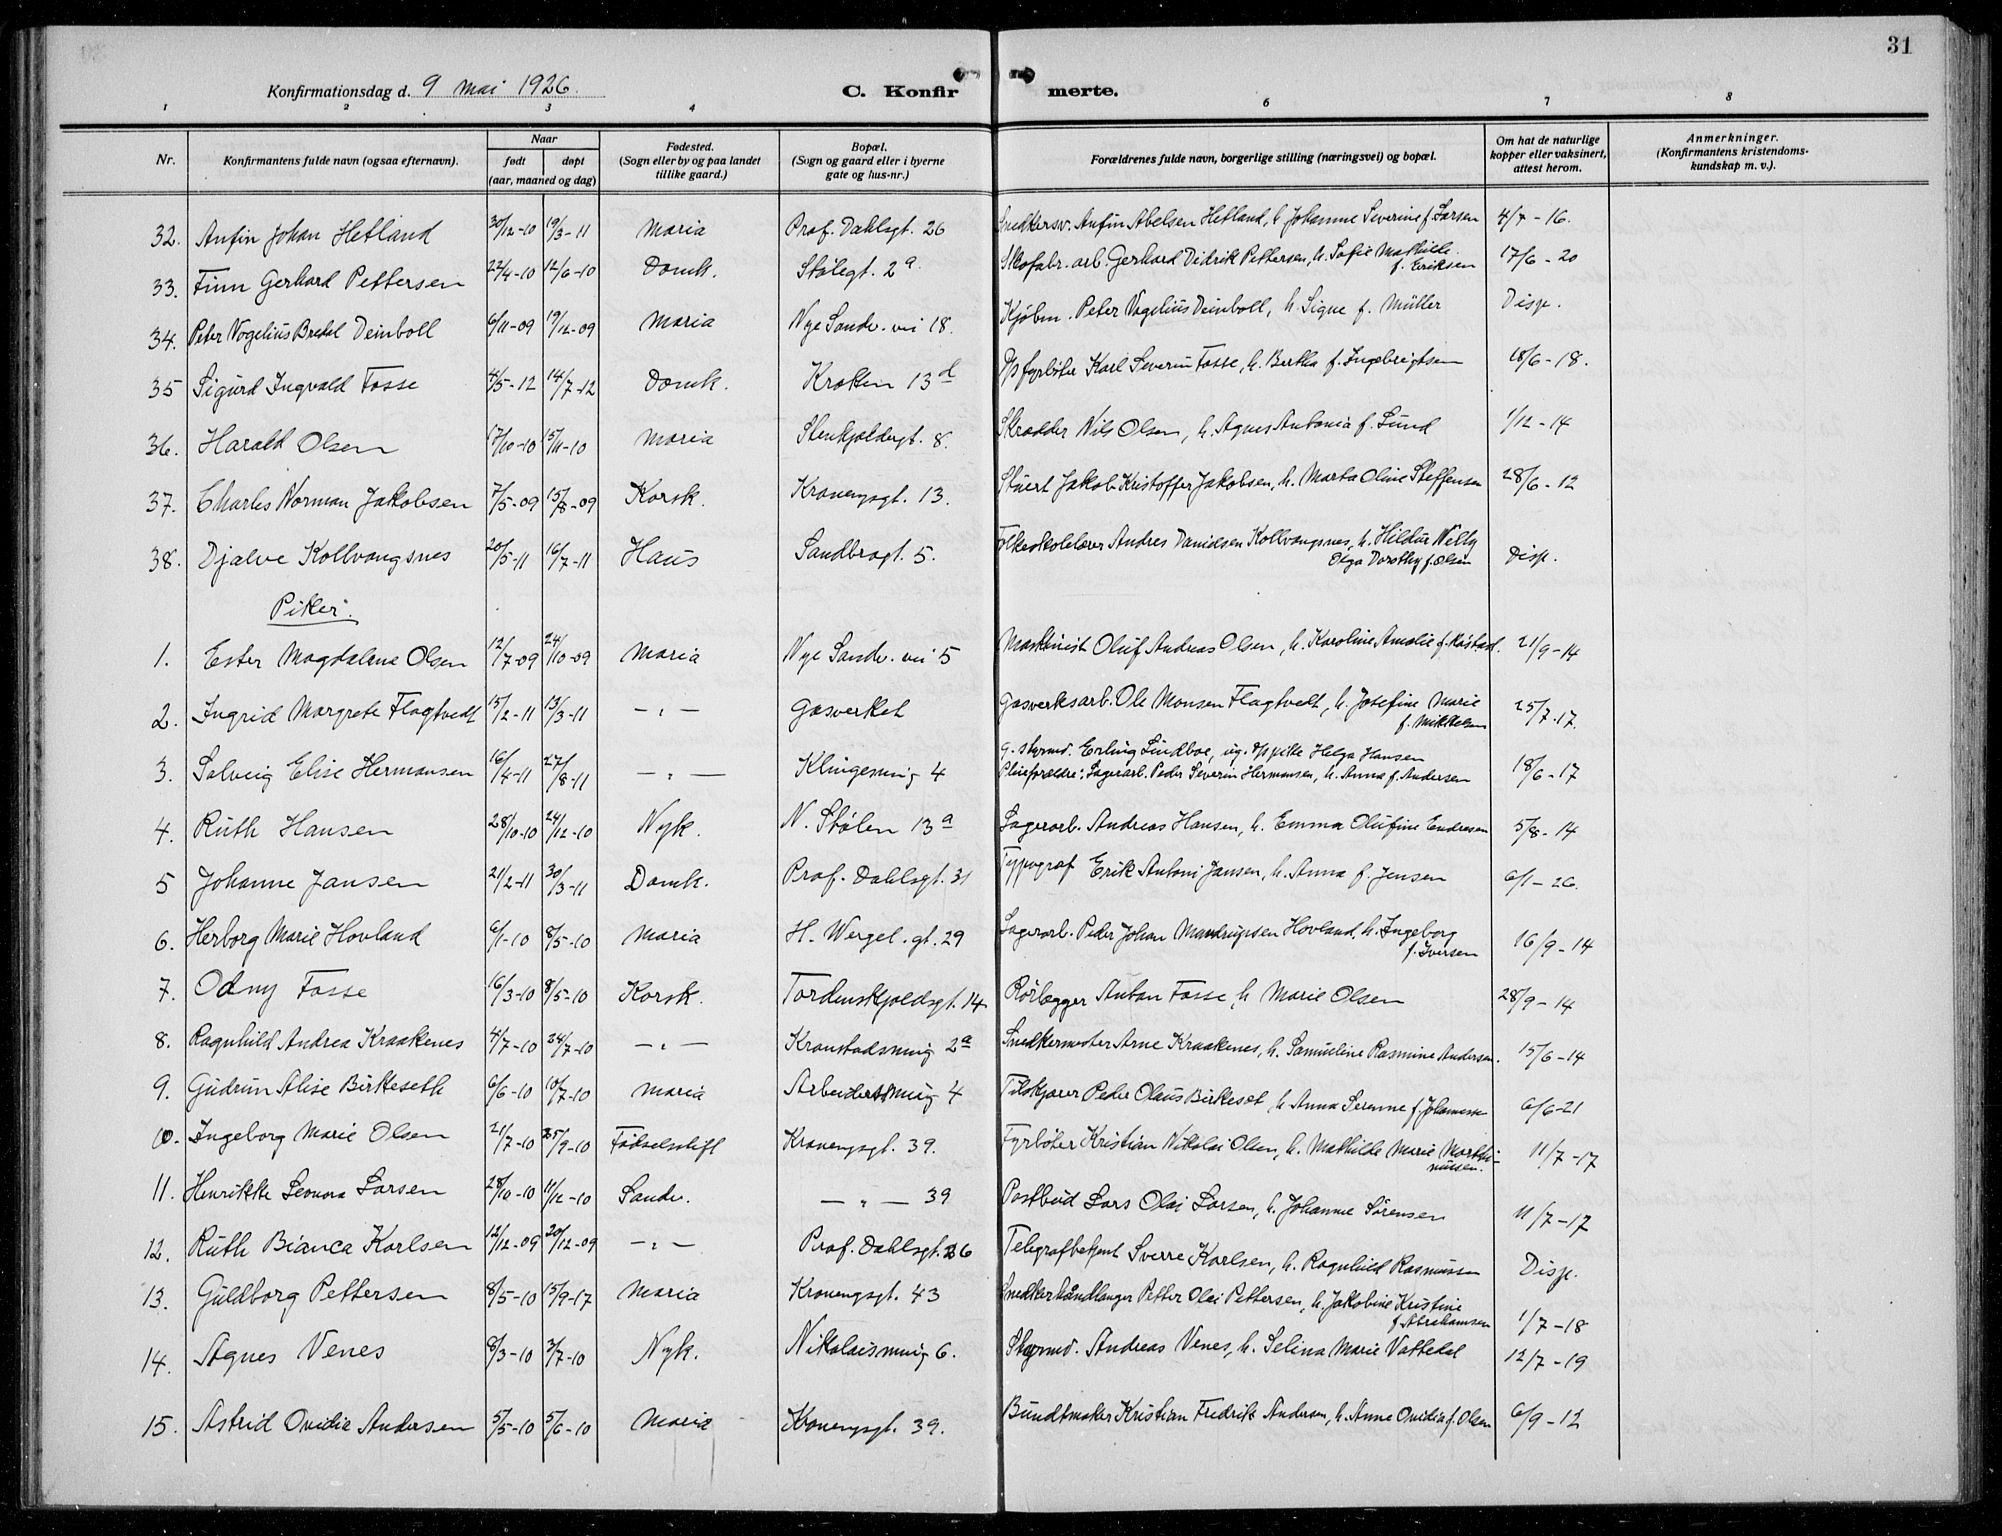 31
Konfirmationsdag d. 9 mai 1926.
C. Konfir merte.
1 2 3 4 6 7 8
Nr.
Konfirmantens fulde navn (ogsaa efternavn).
Naar
født døpt
(aar, maaned og dag)
Fødested.
(Sogn eller by og paa landet
tillike gaard.)
Bopæl.
(Sogn og gaard eller i byerne
gate og hus-nr.)
Forældrenes fulde navn, borgerlige stilling (næringsvei) og bopæl.
Om hat de naturlige
kopper eller vaksinert,
attest herom.
Anmerkninger.
(Konfirmantens kristendoms-
kundskap m. v.).
32. Anfin Johan Hetland 30/12-10 19/3-11 Maria Prof. Dahlsgt. 26 Snedkersv. Anfin Abelsen Hetland, h. Johanne Severine f. Larsen 4/7-16.
33. Finn Gerhard Pettersen 22/4-10 12/6-10 Domk. Stølegt. 2a. Skofabr. arb. Gerhard Didrik Pettersen, h. Sofie Mathilde
f. Eriksen 17/6-20
34. Peter Vogelius Bredal Deinboll 6/11-09 19/12-09 Maria Nye Sandv. vei 18. Kjøbm. Peter Vogelius Deinboll, h. Signe f. Müller Disp.
35 Sigurd Ingvald Fosse 4/5-12 14/7-12 Domk. Kroken 13d D/s fyrbøter Karl Severin Fosse, h. Bertha f. Ingebrigtsen 18/6-18.
36. Harald Olsen 17/10-10 15/11-10 Maria Stenkjeldergt. 8. Skrædder Nils Olsen, h. Agnes Antonia f. Lund 1/12-14
37. Charles Norman Jakobsen 7/5-09 15/8-09 Korsk. Kronengsgt. 13. Stuert Jakob Kristoffer Jakobsen, h. Marta Oline Steffensen 28/6-12
38. Djalve Kollvangsnes 20/5-11 16/7-11 Haus Sandbrogt. 5. Folkeskolelærer Andres Danielsen Kollvangsnes, h. Hildur Nelly
Olga Dorothy f. Olsen Disp.
Piker.
1. Ester Magdalena Olsen 12/7-09 24/10-09 Maria Nye Sandv. vei 5 Maskinist Oluf Andreas Olsen, h. Karoline Amalie 21/9-14
2. Ingrid Margrete Flagtvedt 15/2-11 13/3-11 — „ — Gasverket Gasverksarb. Ole Monsen Flagtvedt, h. Josefine Marie
f. Mikkelsen 25/7-17.
3. Solveig Elise Hermansen 16/4-11 27/8-11 — „ — Klingesmug 4 g. styrmd. Erling Lindboe, ug. Helga Hansen
Pleieforældre: Lagerarb. Peder Severin Hermansen, h. Anna f. Andersen 18/6-17
4. Ruth Hansen 28/10-10 24/12-10 Nyk. N. Stølen 13a Lagerarb. Andreas Hansen, h. Emma Olufine Endresen 5/8-14
5 Johanne Jansen 21/2-11 30/3-11 Domk. Prof. Dahlsgt. 31 Typograf Erik Antoni Jansen, h. Anna f. Jensen 6/1-26.
6. Herborg Marie Hovland 6/1-10 8/5-10 Maria H. Wergel. gt. 29 Lagerarb. Peder Johan Mandrupsen Hovland, h. Ingeborg
f. Iversen 16/9-14
7. Odny Fosse 16/3-10 8/5-10 Korsk. Tordenskjoldsgt. 14 Rørlægger Anton Fosse, h. Marie Olsen 28/9-14
8. Ragnhild Andrea Kraakenes 4/7-10 24/7-10 — „ — Kronstadsmug 2a Snedkermester Arne Kraakenes, h. Samueline Rasmine Andersen. 15/6-14
9. Gudrun Alise Birkeseth 6/6-10 10/7-10 Maria Arbeidersmug 4 Tilskjærer Peder Olaus Birkeset, h. Anna Serenne f. Johannesen 6/6-21
10. Ingeborg Marie Olsen 21/7-10 25/9-10 Fødselsstift Kronengsgt. 39. Fyrbøter Kristian Nikolai Olsen, h. Mathilde Marie Marthi-
nussen. 11/7-17
11. Henrikke Leonora Larsen 28/10-10 11/12-10 Sandv. — „ — 39 Postbud Lars Olai Larsen, h. Johanne Sørensen 11/7-17
12. Ruth Bianca Karlsen 12/12-09 20/12-09 — „ — Prof. Dahlsgt. 36 Telegrafbetjent Sverre Karlsen, h. Ragnhild Rasmussen Disp.
13. Guldborg Pettersen 8/5-10 15/9-17 Maria Kronengsgt. 43 Snedkerhåndlanger Petter Olai Pettersen, h. Jakobine Kristine
f. Abrahamsen 1/7-18
14. Agnes Venes 8/3-10 3/7-10 Nyk. Nikolaismug 6. Styrmd. Andreas Venes, h. Selina Marie Vattedal 12/7-19
15. Astrid Ovidia Andersen 5/5-10 5/6-10 Maria Kronengsgt. 39. Bundtmaker Kristian Fredrik Andersen, h. Anna Ovidia f. Olsen 6/9-12